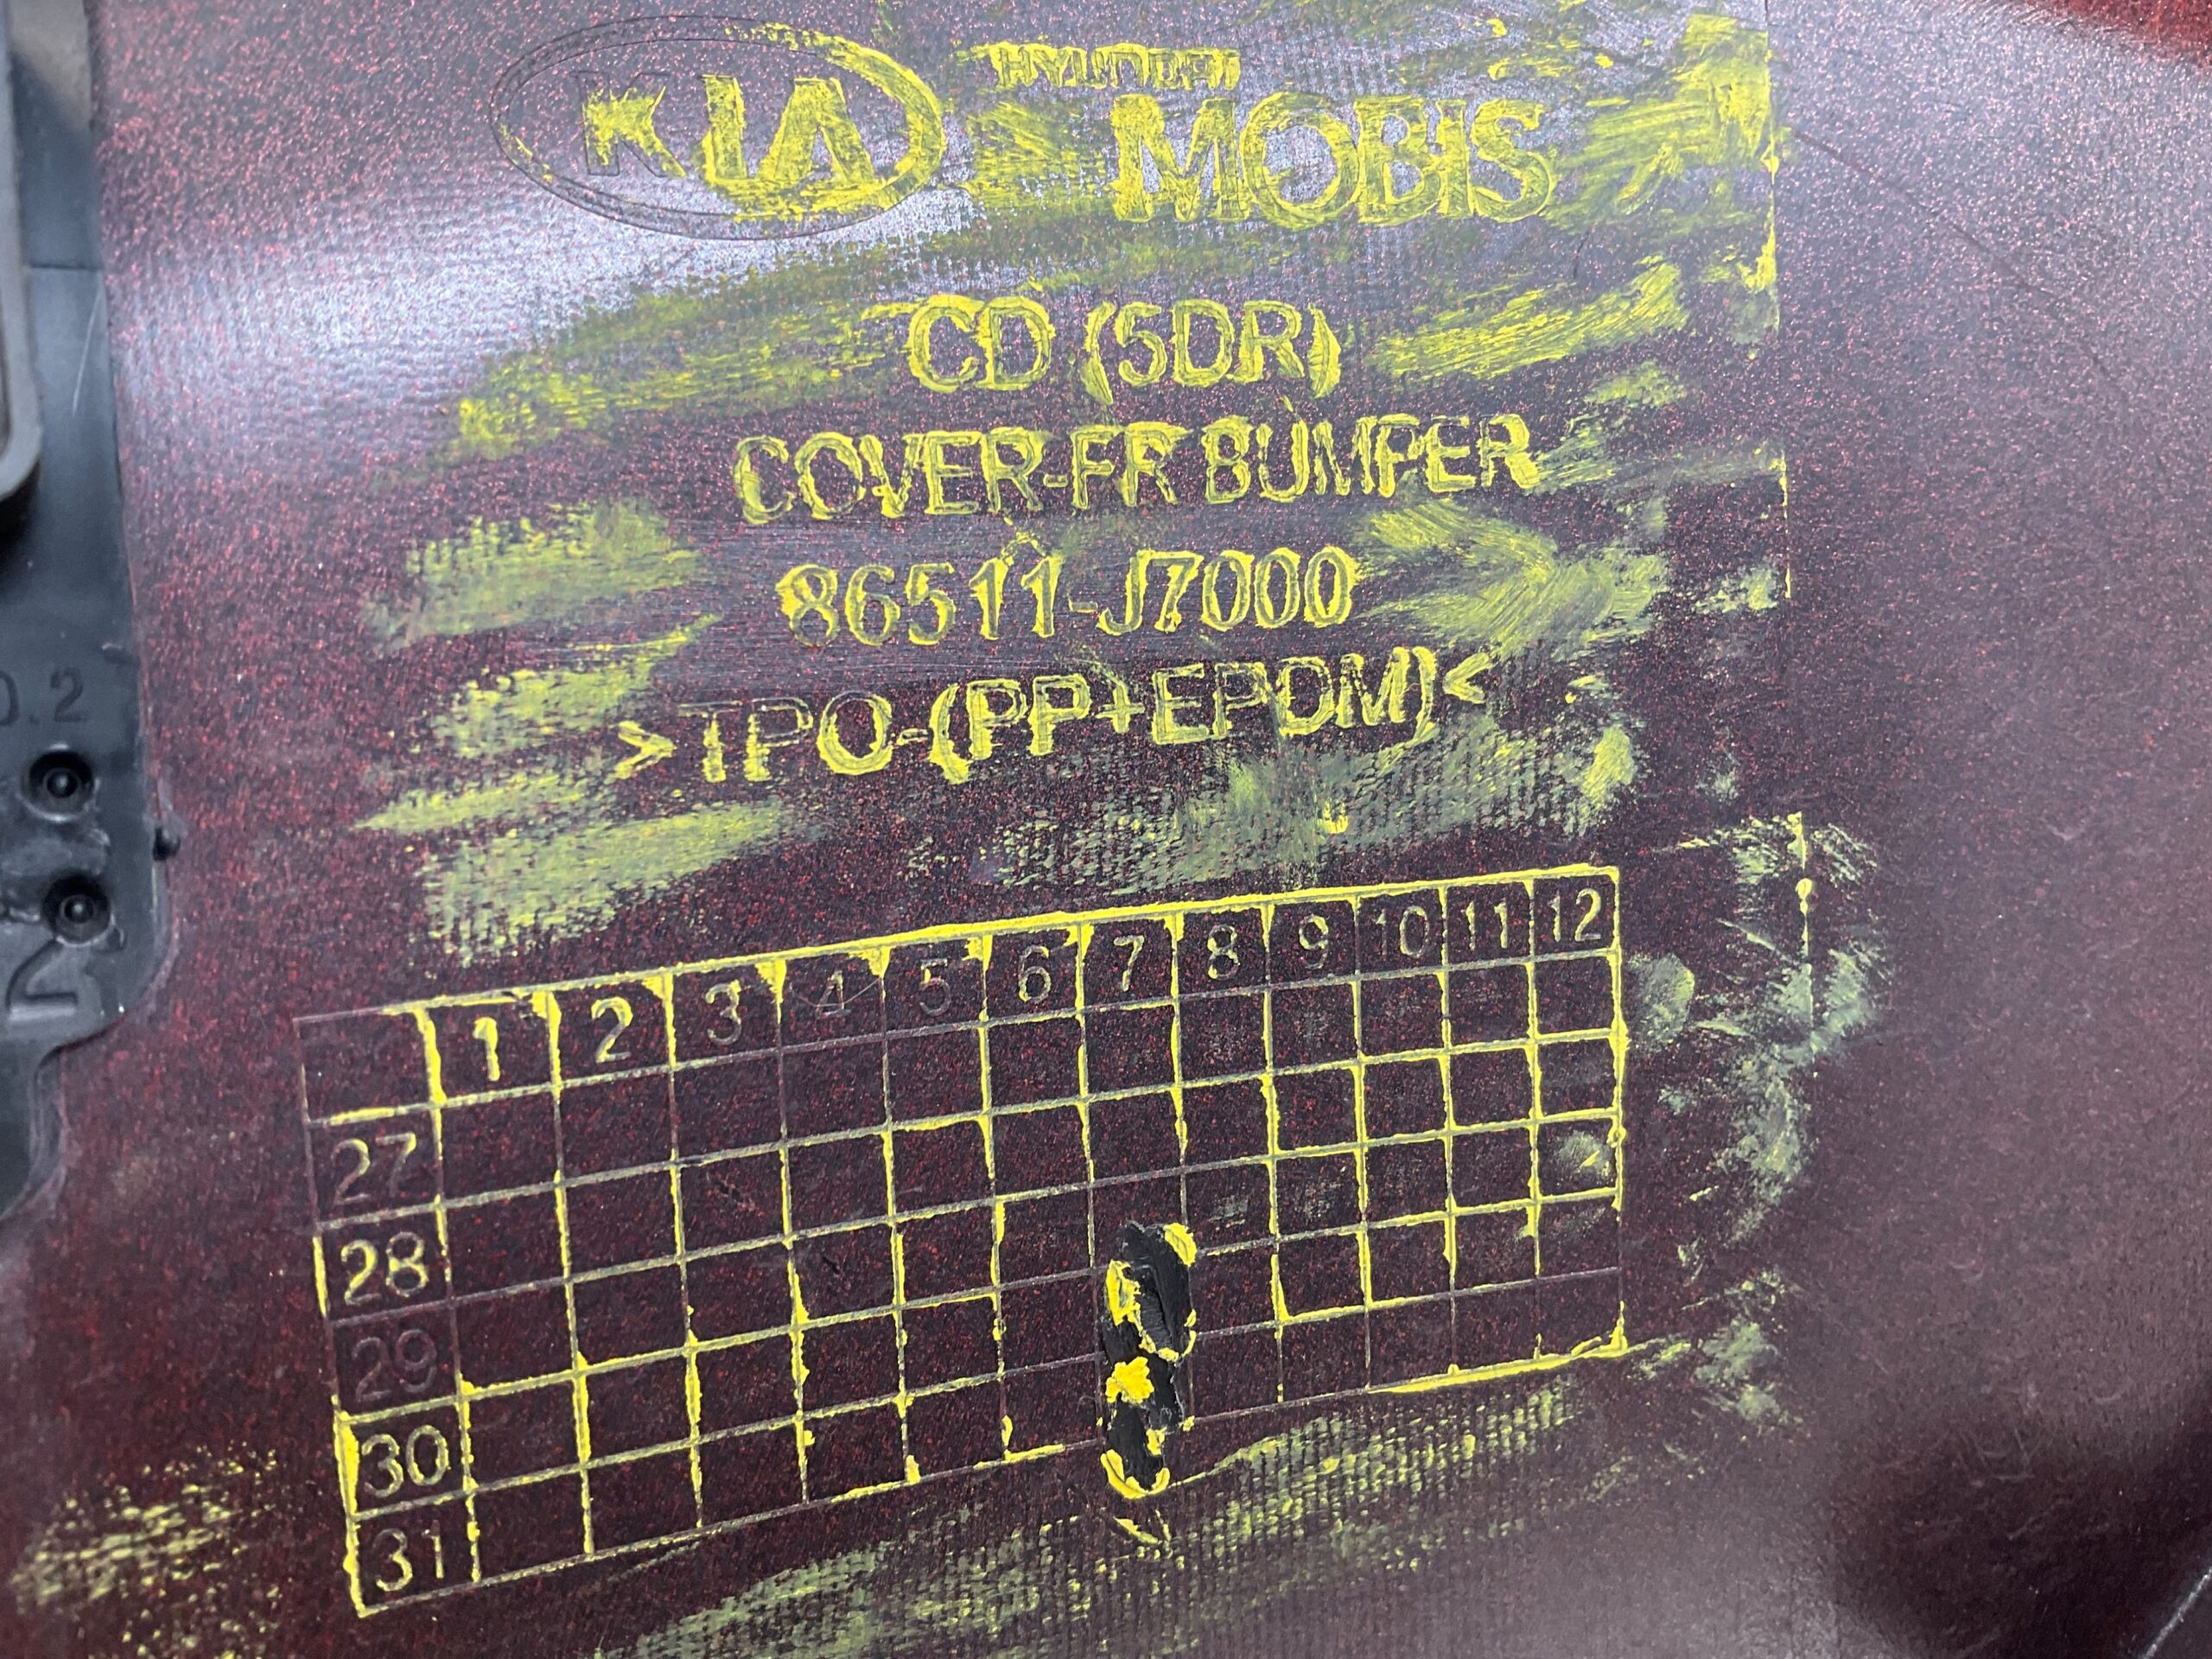 KIA
HYUNDAI
MOBIS
CD (5DR)
COVER-FR BUMPER
86511-J7000
>TPO-(PP+EPDM)<
1 2 3 4 5 6 7 8 9 10 11 12
27
28
29
30
31
0.2
2